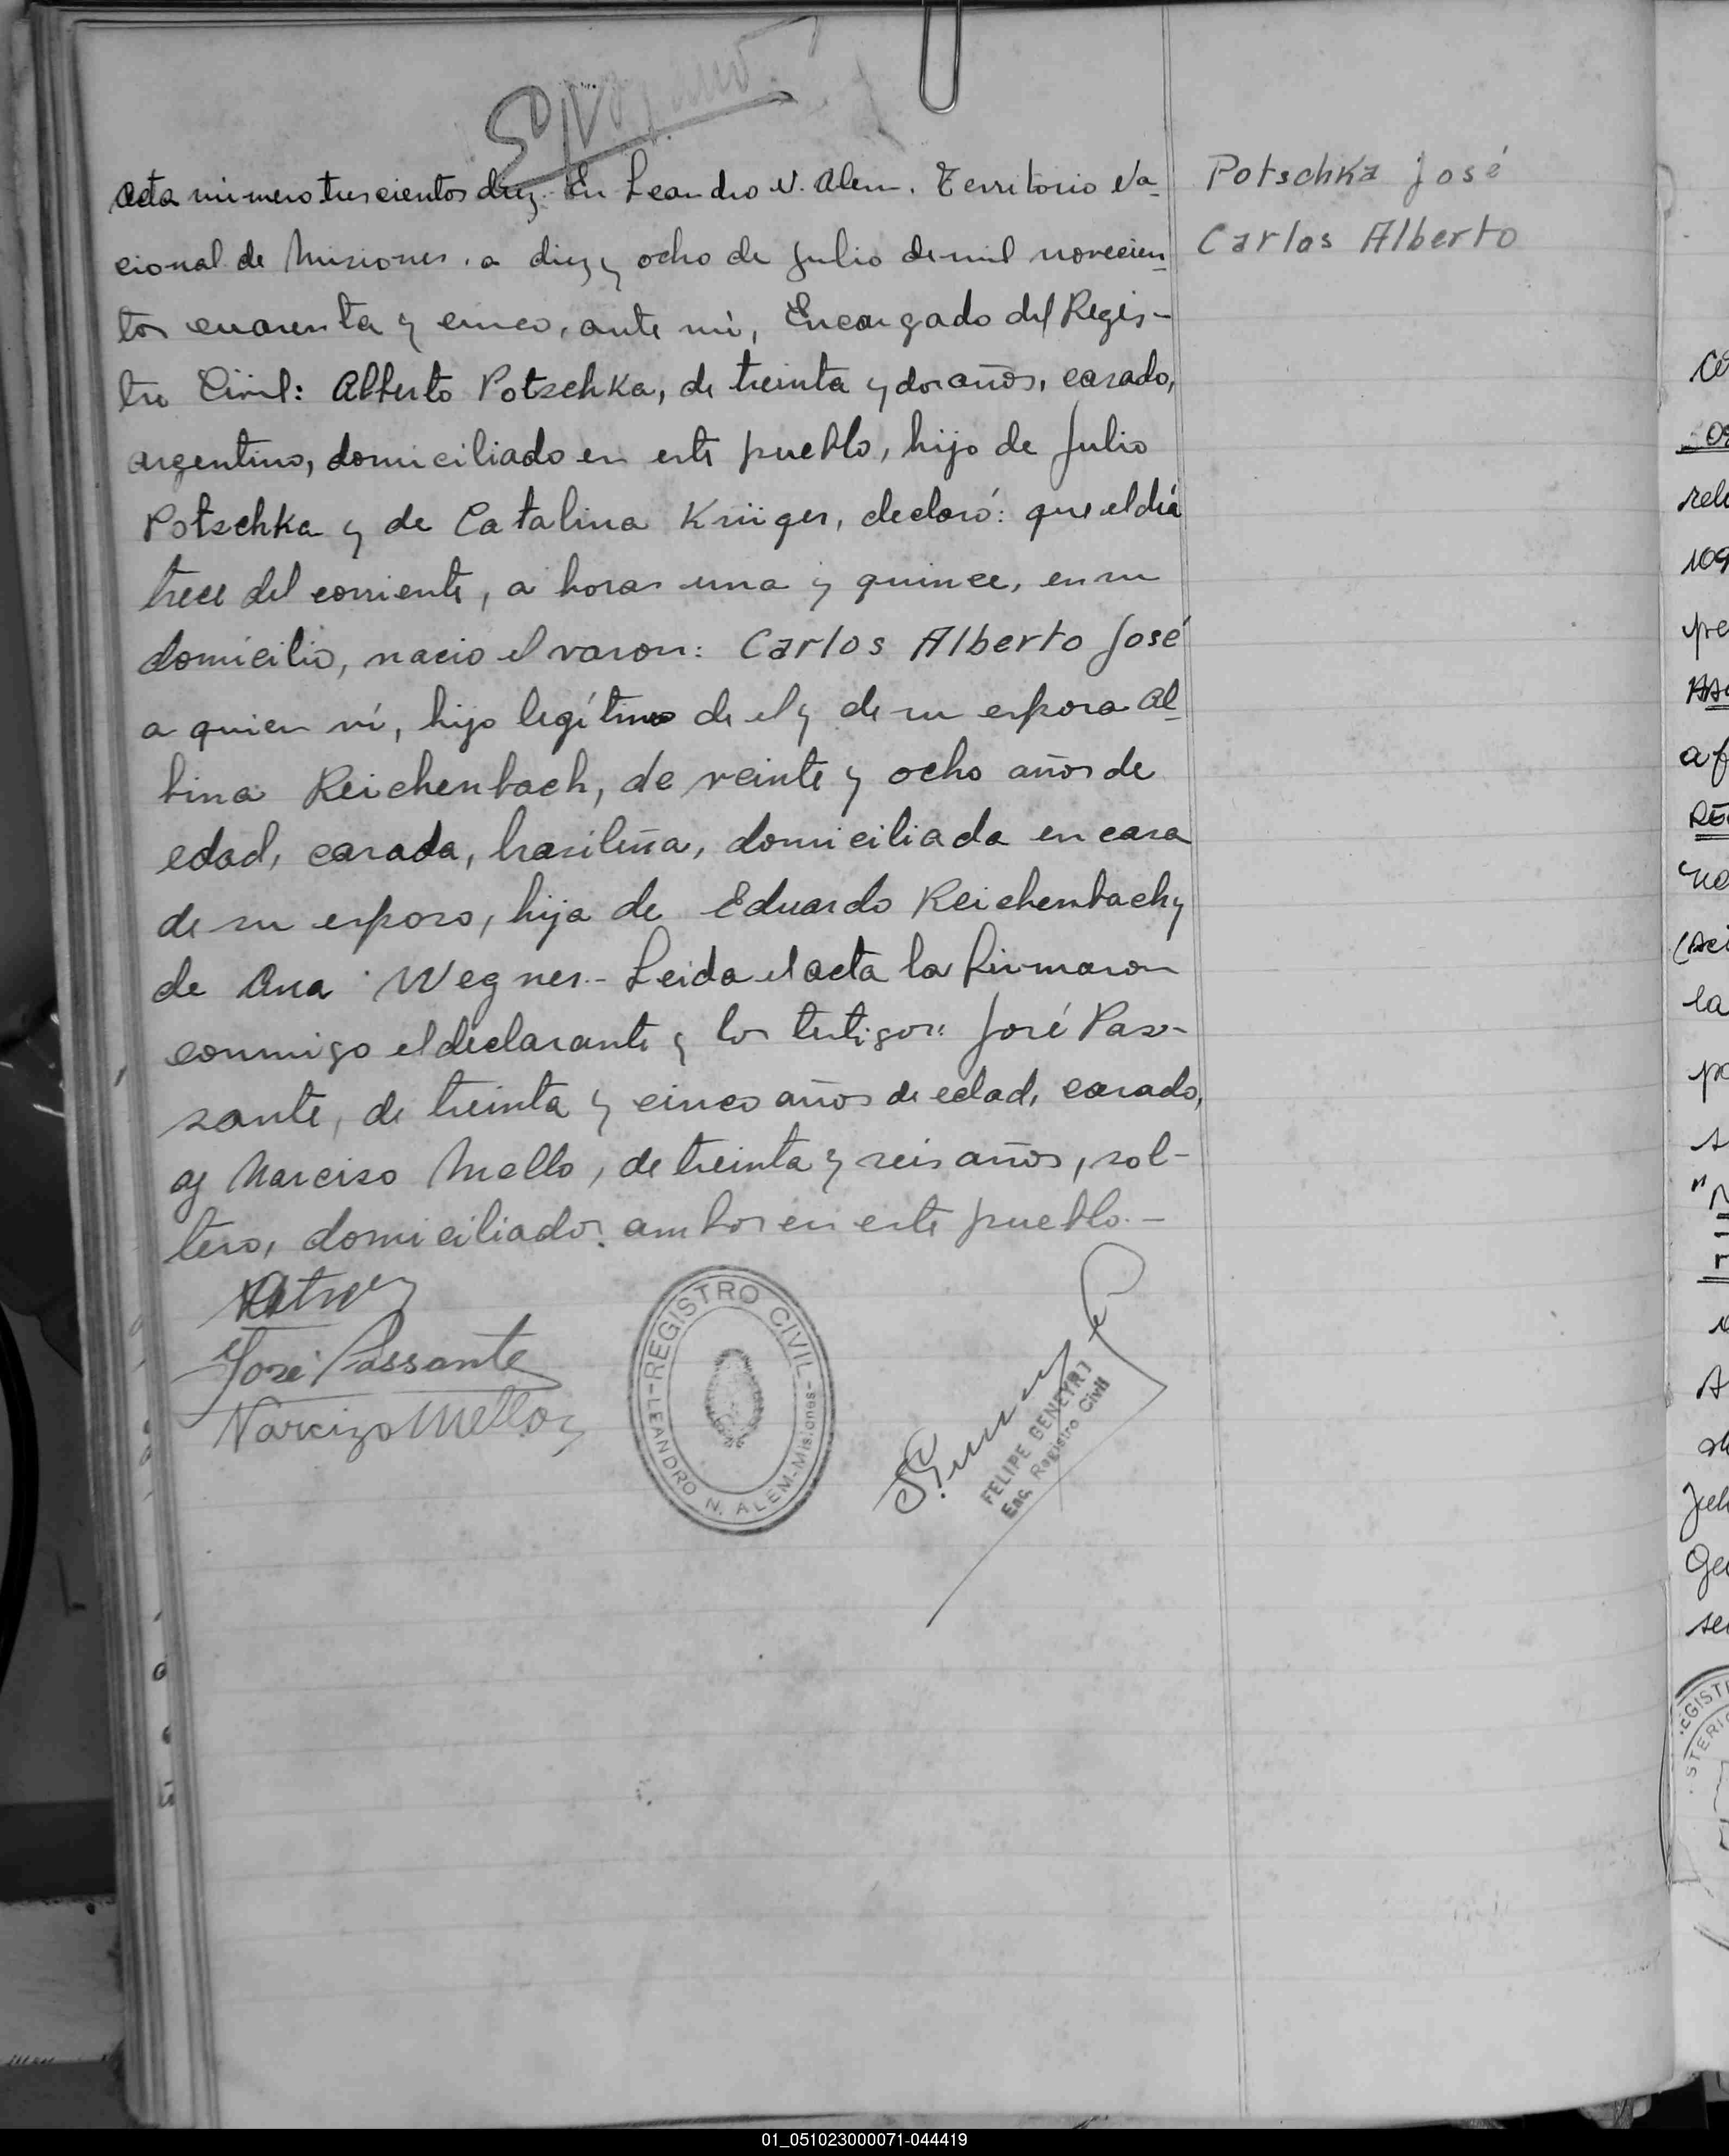 Acta número trescientos diez. En Leandro N. Alem. Territorio Na-
cional de Misiones. a diez y ocho de Julio de mil novecien-
tos cuarenta y cinco, ante mi, Encargado del Regis-
tro Civil: Alberto Potschka, de treinta y dos años, casado,
argentino, domiciliado en este pueblo, hijo de Julio
Potschka y de Catalina Krüger, declaró: que el diá
trece del corriente, a horas una y quince, en su
domicilio, nacio el varon: Carlos Alberto José
a quien ví, hijo legítimo de el y de su esposa Al-
bina Reichenbach, de veinte y ocho años de
edad, casada, brasileña, domiciliada en casa
de su esposo, hija de Eduardo Reichenbach y
de Ana Wegner.- Leida el acta la firmaron
conmigo el declarante y los testigos: José Pas-
sante, de treinta y cinco años de edad, casado,
y Narciso Mello, de treinta y seis años, sol-
tero, domiciliados ambos en este pueblo.-
José Passante
Narcizo Mello
REGISTRO CIVIL
LEANDRO N. ALEM-Misiones
FELIPE GENEYRI
Enc. Registro Civil
Potschka José
Carlos Alberto
01_051023000071-044419